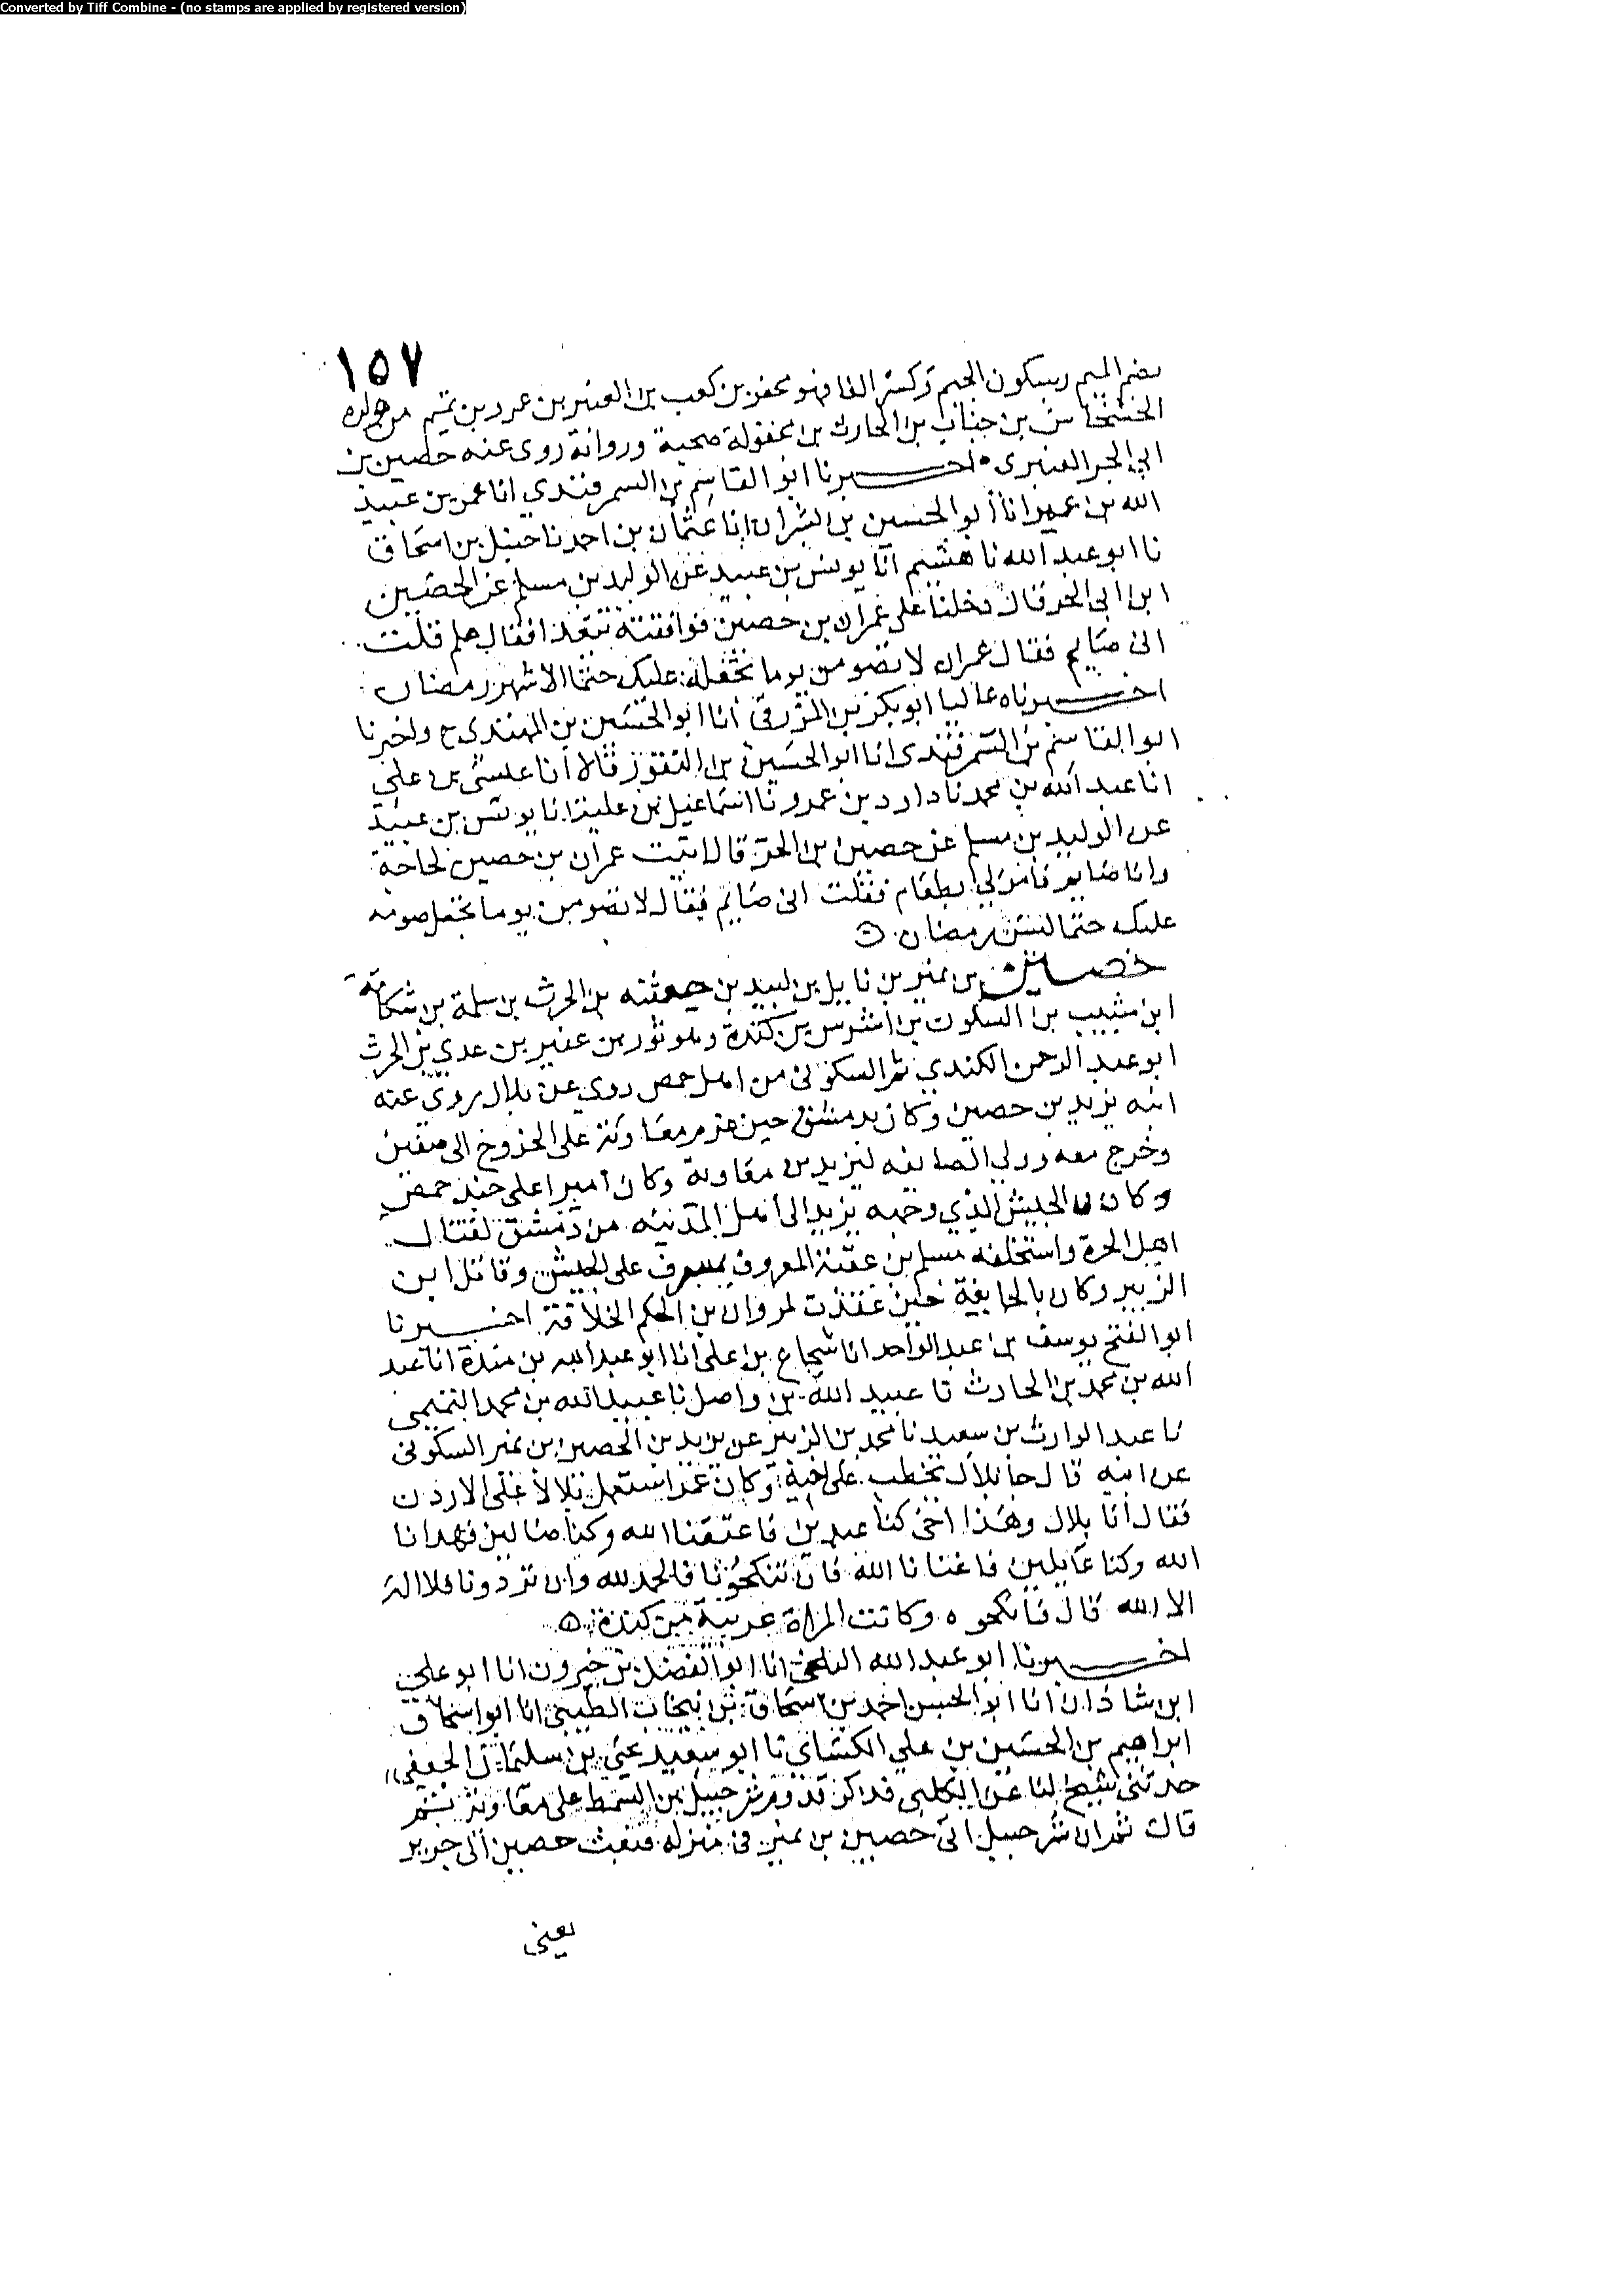 Converted by Tiff Combine - (no stamps are applied by registered version)
١٥٧
بضم الميم وبسكون الجيم وكسر الفا فهو مجفر بن كعب بن العنبر بن عمرو بن تميم من ولده
الخشخاش بن جناب بن الحارث بن مجفر له صحبة ورواية روى عنه حصين بن
ابي الحر العنبرى اخبرنا ابو القاسم بن السمرقندي انا عمر بن عبيد
الله بن عمر انا ابو الحسين بن بشران انا عثمان بن احمد نا حنبل بن اسحاق
نا ابو عبد الله نا هشيم انا يونس بن عبيد عن الوليد بن مسلم عن الحصين
ابن ابى الحر قال دخلنا على عمران بن حصين فوافقته يتغذا فقال هلم قلت
انى صايم فقال عمران لا تصومن يوما تجعله عليك حتما الا شهر رمضان
اخبرناه عاليا ابو بكر بن المزرقى انا ابو الحسين بن المهتدى ح واخبرنا
ابو القاسم بن السمرقندى انا ابو الحسين بن النقور قالا انا عيسى بن على
انا عبد الله بن محمد نا داود بن عمرو نا اسماعيل بن علية انا يونس بن عبيد
عن الوليد بن مسلم عن حصين بن الحر قال اتيت عمران بن حصين لحاجة
وانا صايم فامر لي بطعام فقلت انى صايم فقال لا تصومن يوما تجعل صومه
عليك حتما ليس رمضان ٥
حصين بن نمير بن نايل بن لبيد بن جعثنه بن الحرث بن سلمة بن شكامة
ابن شبيب بن السكون بن اشرس بن كندة وهو ثور بن عفير بن عدي بن الحرث
ابو عبد الرحمن الكندي ثم السكونى من اهل حمص روي عن بلال روى عنه
ابنه يزيد بن حصين وكان بدمشق حين عزم معاوية على الخروج الى صفين
وخرج معه وولي الصايفه ليزيد بن معاوية وكان اميرا على جند حمص
وكان فى الجيش الذي وجهه يزيد الى اهل المدينه من دمشق لقتال
اهل الحرة واستخلفه مسلم بن عقبة المعروف بمسرف على الجيش وقاتل ابن
الزبير وكان بالجابية حين عقدت لمروان بن الحكم الخلافة اخبرنا
ابو الفتح يوسف بن عبد الواحد انا شجاع بن على انا ابو عبد الله بن مندة انا عبد
الله بن محمد بن الحارث نا عبيد الله بن واصل نا عبيد الله بن محمد التميمى
نا عبد الوارث بن سعيد نا محمد بن الزبير عن يزيد بن الحصين بن نمير السكونى
عن ابيه قال جا بلال يخطب على اخيه وكان عمر استعمل بلالا على الاردن
فقال انا بلال وهذا اخى كنا عبدين فاعتقنا الله وكنا ضالين فهدانا
الله وكنا عايلين فاغنانا الله فان تنكحونا فالحمد لله وان تردونا فلا اله
الا الله قال فانكحوه وكانت المراة عربية من كندة ٥
اخبرنا ابو عبد الله البلخى انا ابو الفضل بن خيرون انا ابو على
ابن شاذان انا ابو الحسن احمد بن اسحاق بن نيخاب الطيبى انا ابو اسحاق
ابراهيم بن الحسين بن علي الكسائى نا ابو سعيد يحيى بن سليمان الجعفى
حدثنى شيخ لنا عن الكلبى فذكر قدوم شرحبيل بن السمط على معاوية
قال ثم ان شرحبيل اتى حصين بن نمير فى منزله فبعث حصين الى جرير
يعنى